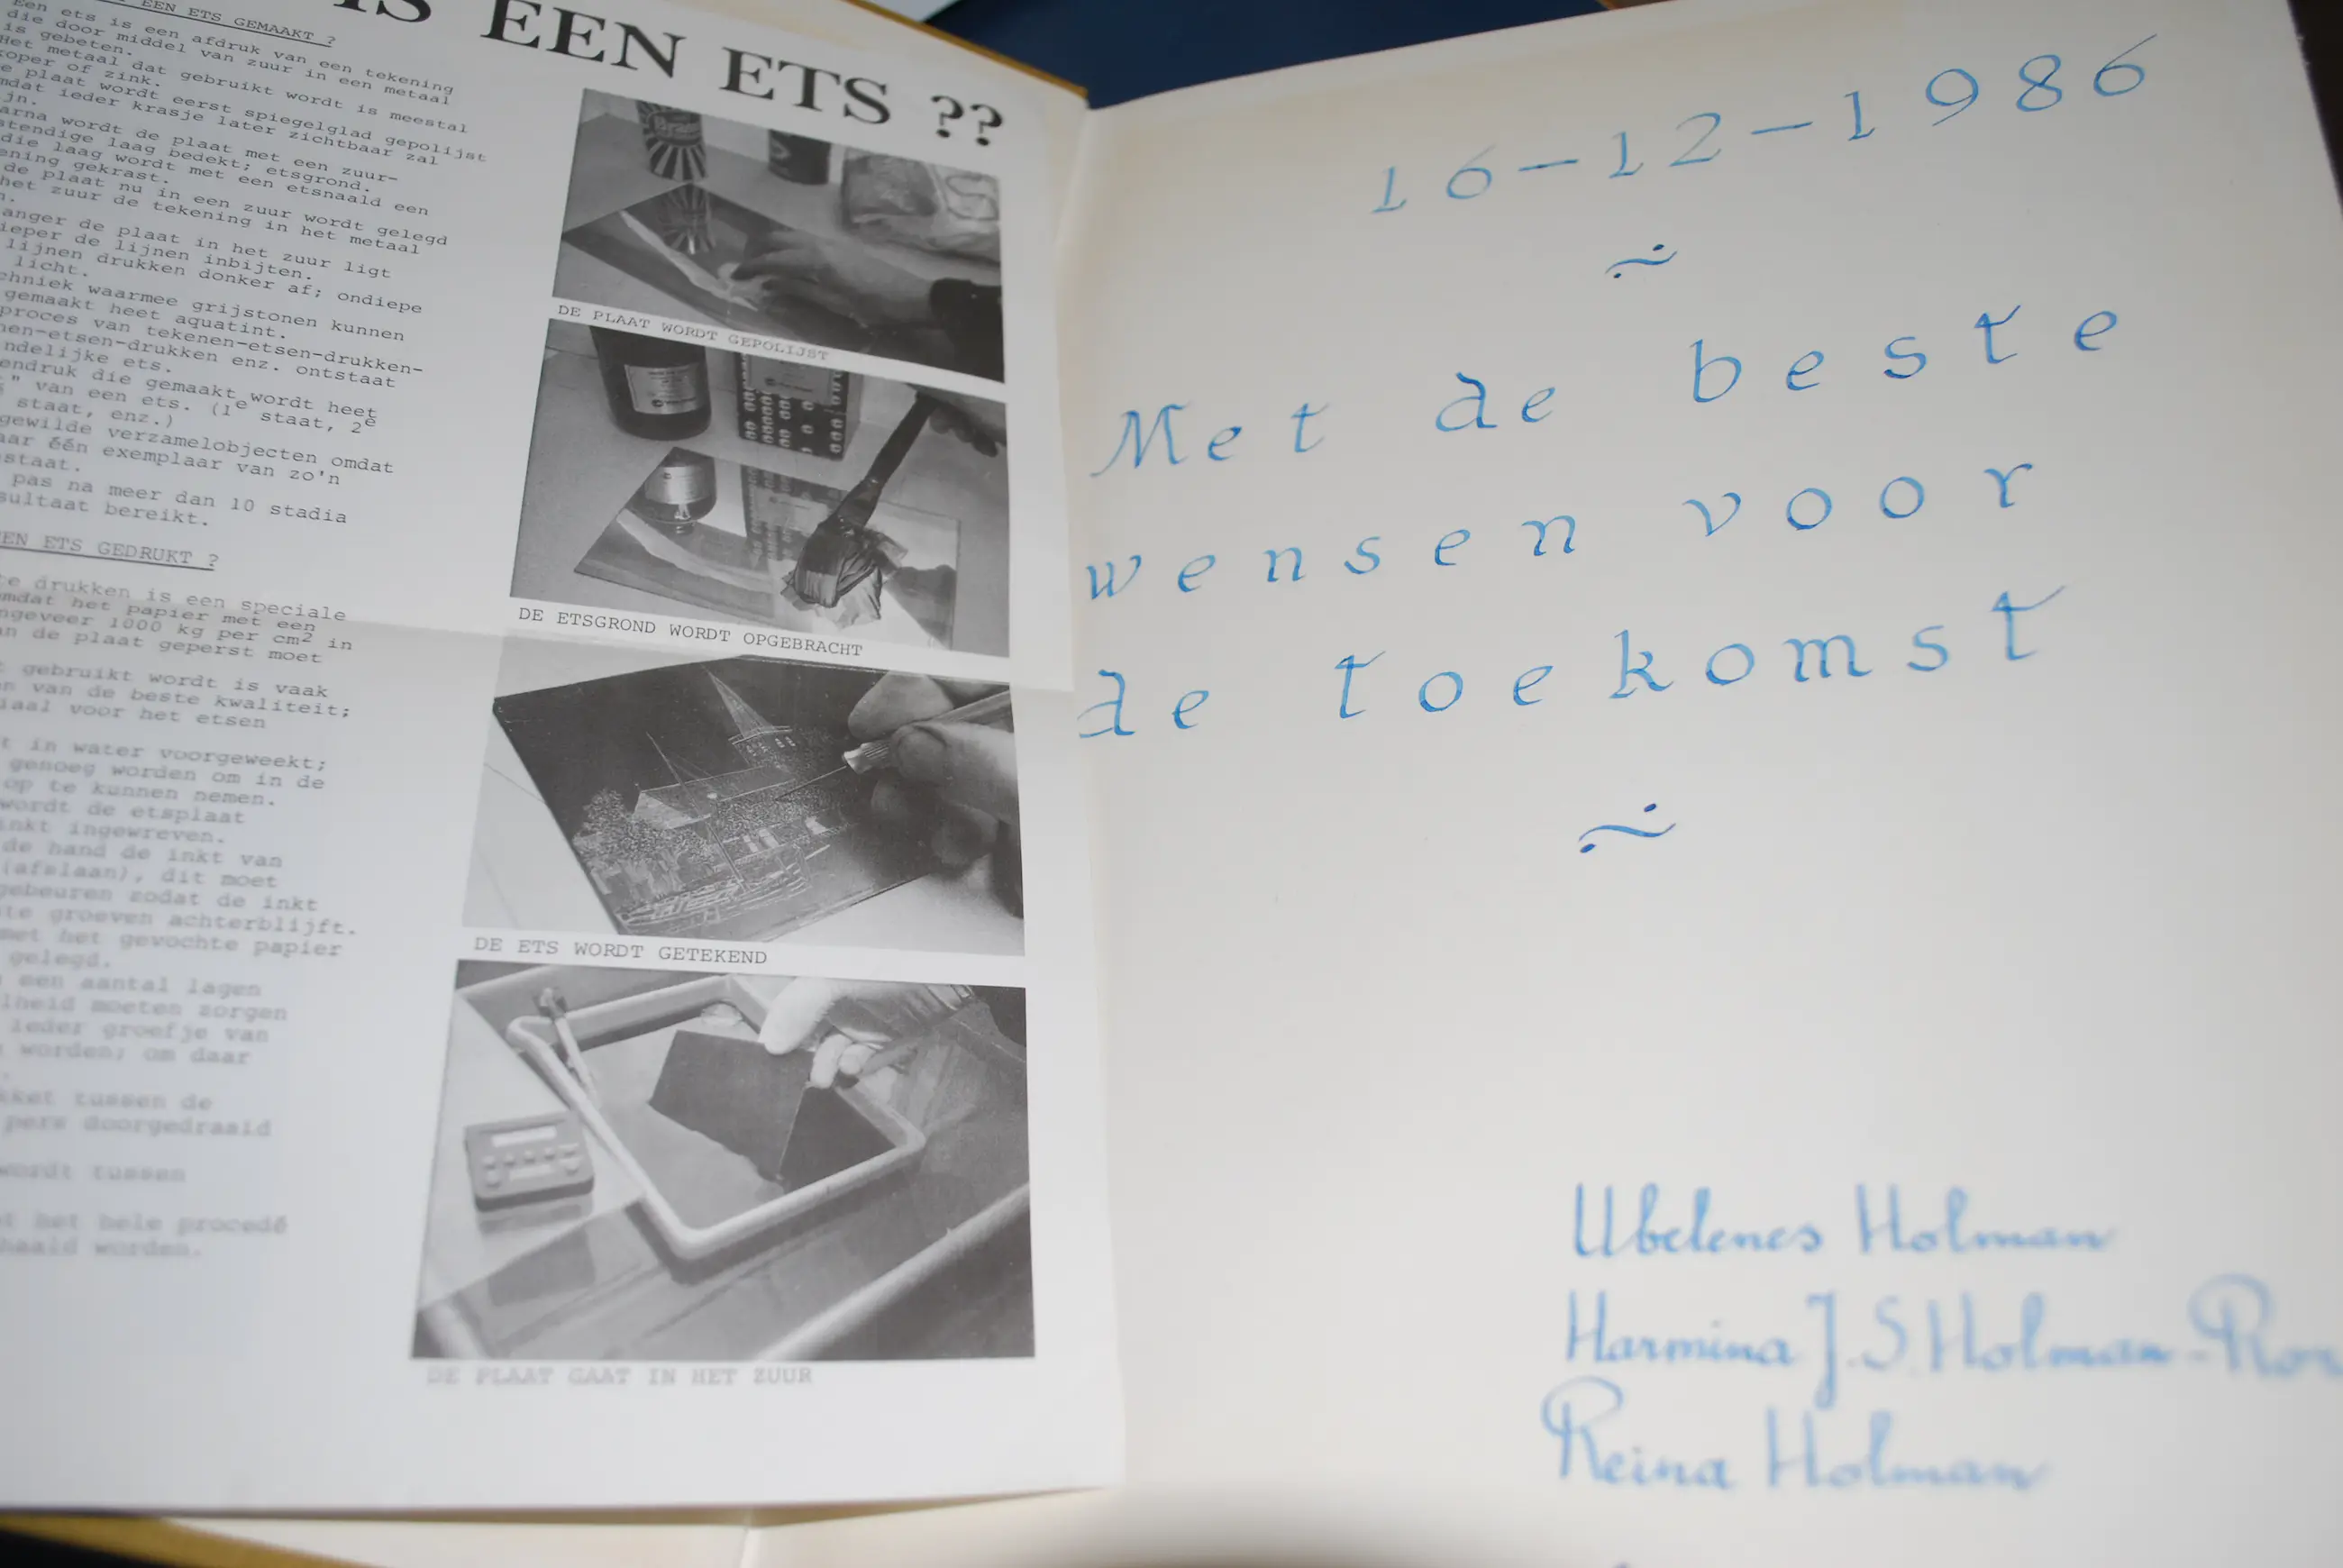 IS EEN ETS ??
EEN ETS GEMAAKT ?
Een ets is een afdruk van een tekening
die door middel van zuur in een metaal
is gebeten.
Het metaal dat gebruikt wordt is meestal
koper of zink.
plaat wordt eerst spiegelglad gepolijst
ieder krasje later zichtbaar zal
wordt de plaat met een zuur-
laag bedekt; etsgrond.
die laag wordt met een etsnaald een
gekrast.
de plaat nu in een zuur wordt gelegd
het zuur de tekening in het metaal
de plaat in het zuur ligt
de lijnen inbijten.
lijnen drukken donker af; ondiepe
licht.
waarmee grijstonen kunnen
gemaakt heet aquatint.
proces van tekenen-etsen-drukken-
etsen-drukken enz. ontstaat
ets.
die gemaakt wordt heet
" van een ets. (1e staat, 2e
staat, enz.)
gewilde verzamelobjecten omdat
één exemplaar van zo'n
pas na meer dan 10 stadia
bereikt.
ETS GEDRUKT ?
te drukken is een speciale
het papier met een
1000 kg per cm2 in
de plaat geperst moet
gebruikt wordt is vaak
van de beste kwaliteit;
voor het etsen
in water voorgeweekt;
genoeg worden om in de
op te kunnen nemen.
wordt de etsplaat
inkt ingewreven.
de hand de inkt van
(afslaan), dit moet
gebeuren zodat de inkt
groeven achterblijft.
met het gevochte papier
gelegd.
een aantal lagen
moeten zorgen
ieder groefje van
worden; om daar
tussen de
pers doorgedraaid
wordt tussen
het hele procedé
worden.
DE PLAAT WORDT GEPOLIJST
DE ETSGROND WORDT OPGEBRACHT
DE ETS WORDT GETEKEND
DE PLAAT GAAT IN HET ZUUR
16-12-1986
Met de beste
wensen voor
de toekomst
Ubelenes Holman
Harmina J.S. Holman-
Reina Holman